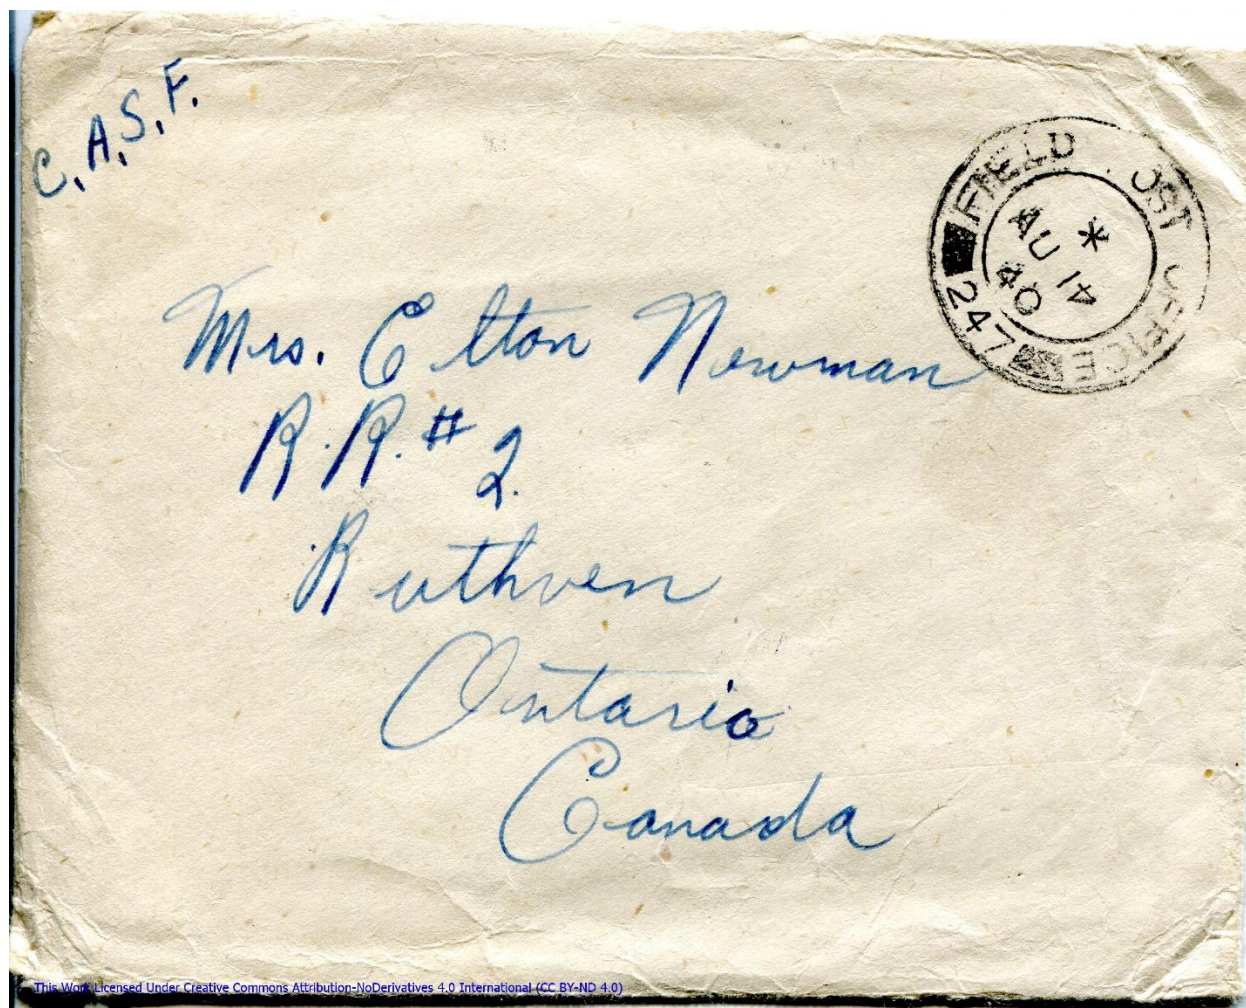 C.A.S.F.
FIELD POST OFFICE
*
AU 14
40
247
Mrs. Elton Newman
R.R. # 2.
Ruthven
Ontario
Canada
This Work Licensed Under Creative Commons Attribution-NoDerivatives 4.0 International (CC BY-ND 4.0)